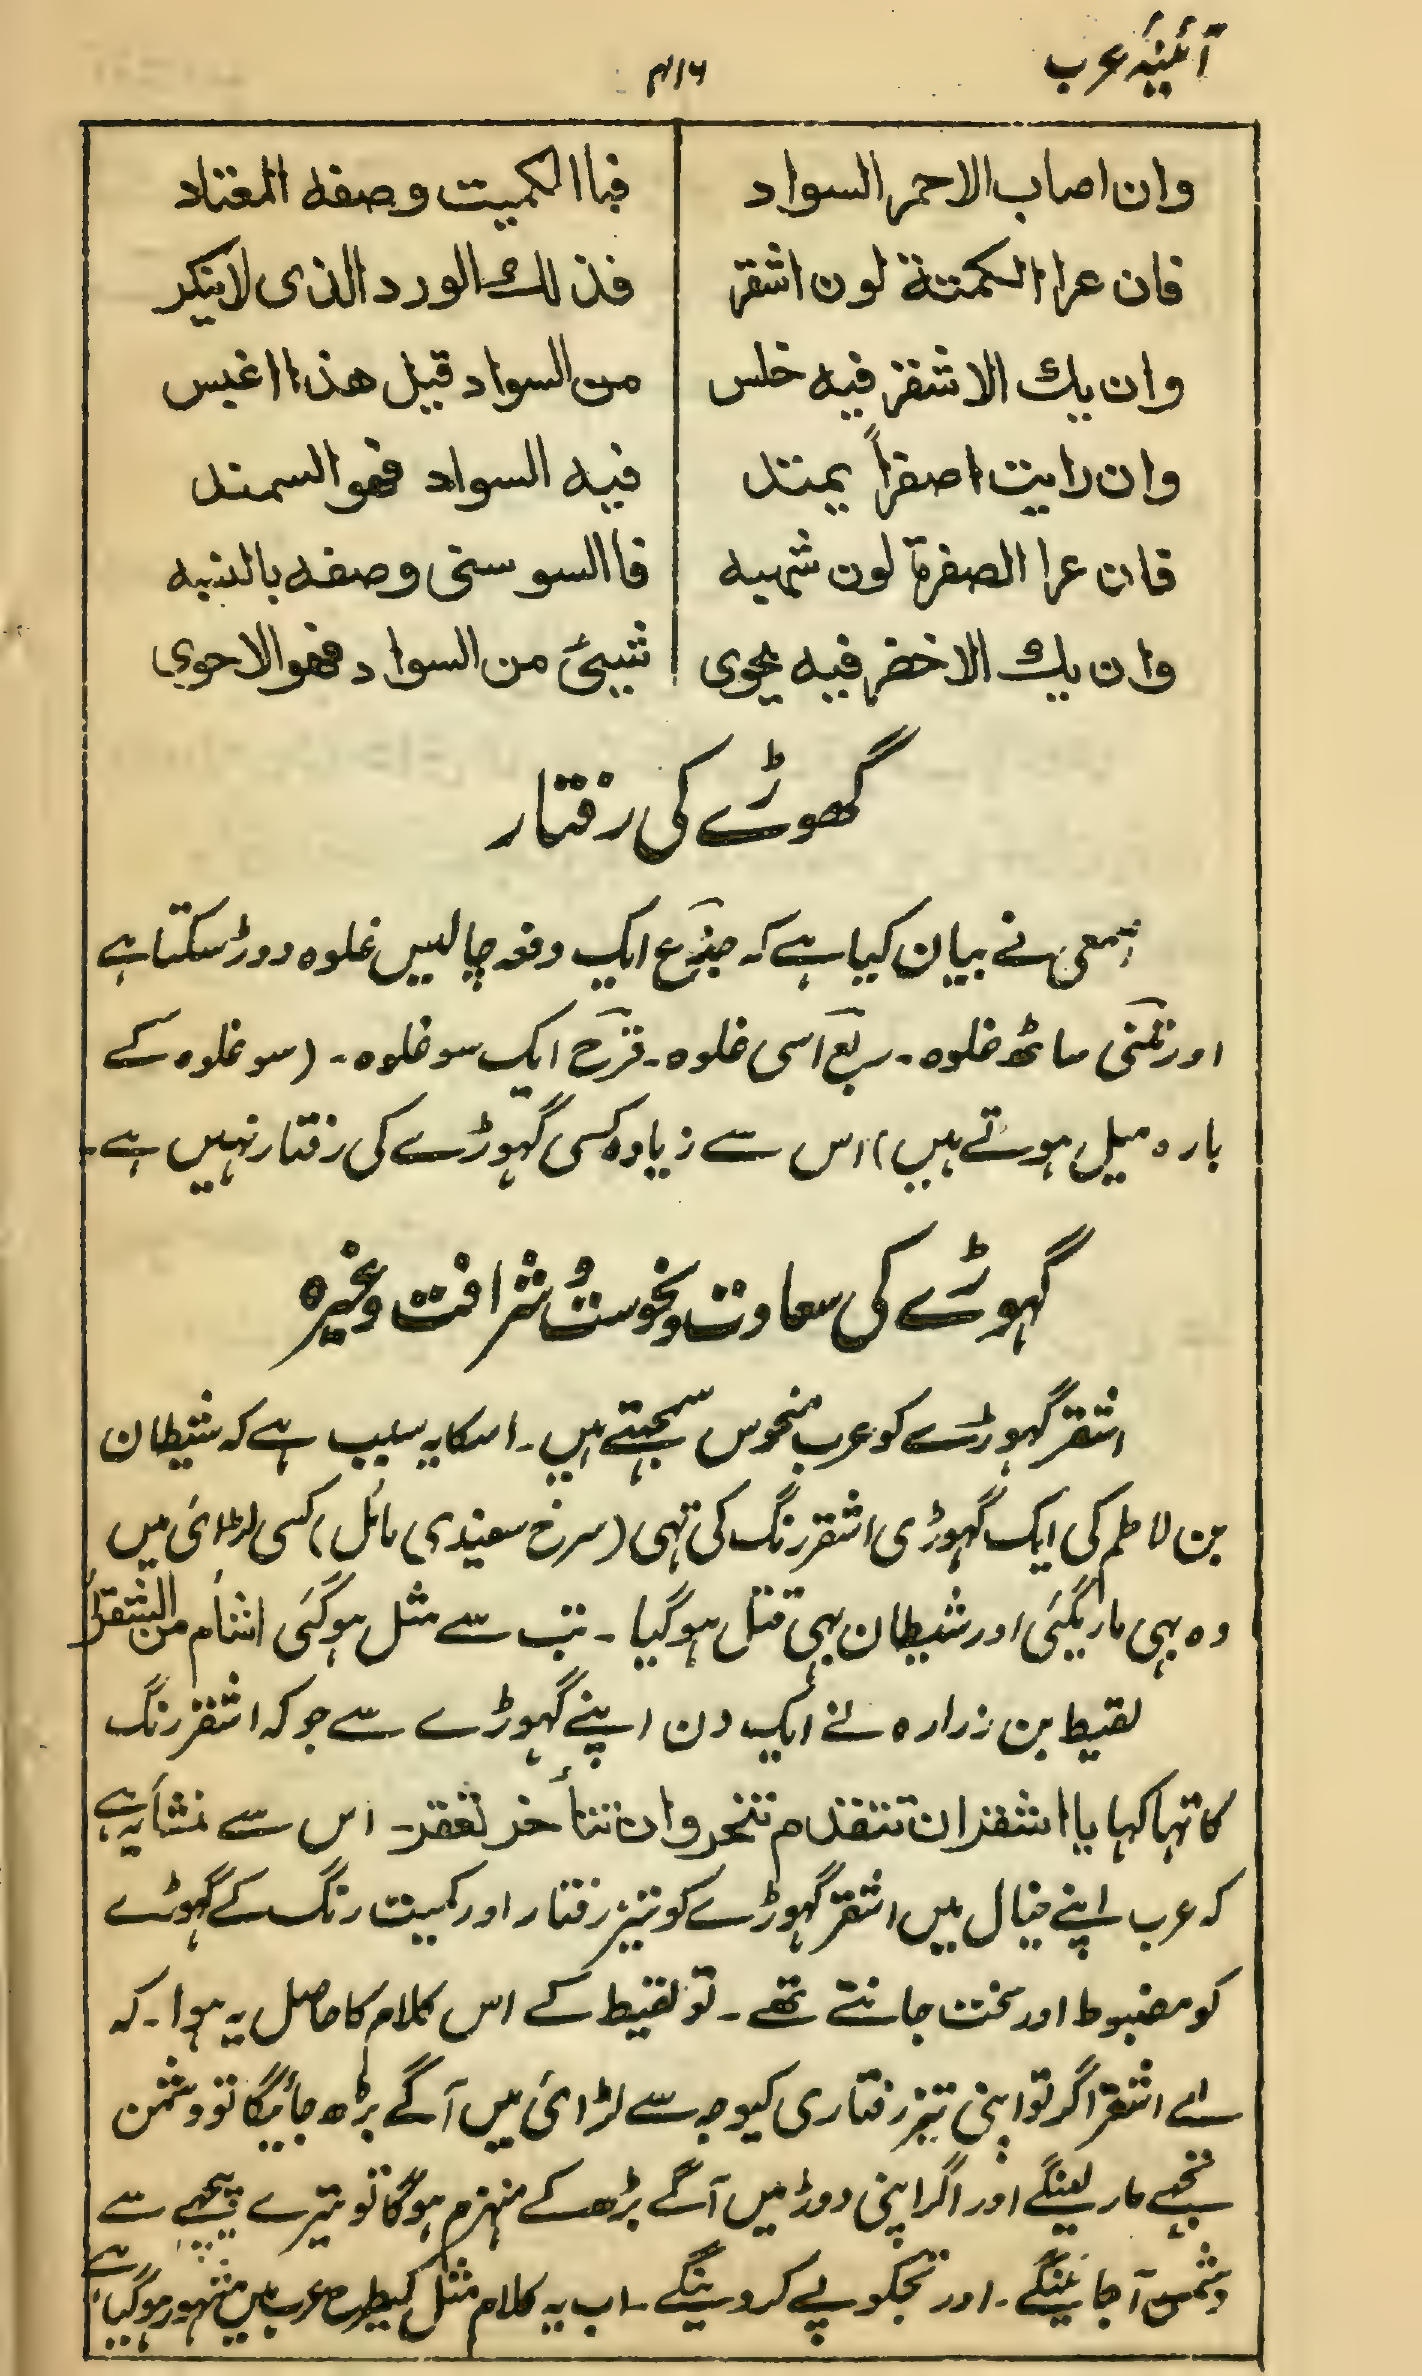 آئینۂ عرب
۴۱۶
وان اصاب الاحمر السواد
فباالکمیت وصفه المعتاد
فان عرا الکمتة لون اشقر
فذلك الورد الذی لاینکر
وان یك الاشقر فیه خلس
من السواد قیل هذا اغبس
وان رایت اصفراً یمتد
فیه السواد فهو السمند
فان عرا الصفرة لون شهبیه
فاالسوسنی وصفه بالنبیه
وان یك الاخضر فیه یحوی
شیئ من السواد فهو الاحوی
گھوڑے کی رفتار
اصمعی نے بیان کیا ہے کہ جذع ایک دفعہ چالیس غلوہ دوڑ سکتا ہے
اور ثمنی ساٹھ غلوہ ۔ ربع اسی غلوہ ۔ قرح ایک سو غلوہ ۔ (سو غلوہ کے
بارہ میل ہوتے ہیں) اس سے زیادہ کسی گہوڑے کی رفتار نہیں ہے ۔
گہوڑے کی سعادت و نحوست و شرافت وغیرہ
اشقر گہوڑے کو عرب منحوس سمجہتے ہیں ۔ اسکا یہ سبب ہے کہ شیطان
بن لاطم کی ایک گہوڑی اشقر رنگ کی تہی (سرخ سفیدی مائل) کسی لڑائی میں
وہ بہی ماریگئی اور شیطان بہی قتل ہوگیا ۔ تب سے مثل ہوگئی اشأم من الشقراء
لقیط بن زرارہ نے ایک دن اپنے گہوڑے سے جو کہ اشقر رنگ
کا تہا کہا یا اشقر ان تتقدم تنحر وان تتأخر تعقر ۔ اس سے منشأ یہ ہے
کہ عرب اپنے خیال میں اشقر گہوڑے کو تیز رفتار اور کمیت رنگ کے گہوڑے
کو مضبوط اور سخت جانتے تھے ۔ تو لقیط کے اس کلام کا حاصل یہ ہوا ۔ کہ
اے اشقر اگر تو اپنی تیز رفتاری کیوجہ سے لڑائی میں آگے بڑھ جائیگا تو دشمن
تجہے مار لینگے اور اگر اپنی دوڑ میں آگے بڑھ کے منہزم ہوگا تو تیرے پیچہے سے
دشمن آ جائینگے ۔ اور تجکو پے کر دینگے ۔ اب یہ کلام مثل کیطرح عرب میں مشہور ہوگیا ہے